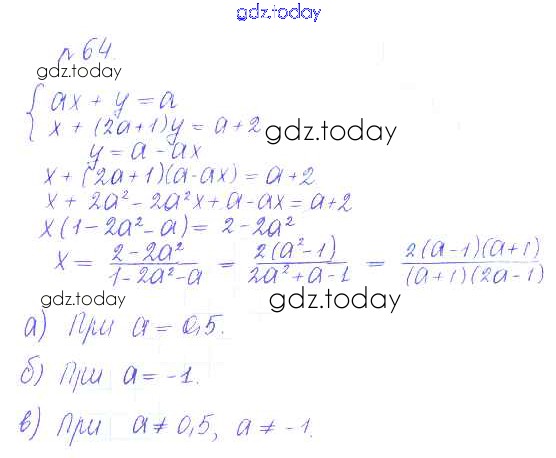 gdz.today
№ 64.
gdz.today
{ ax + y = a
x + (2a+1)y = a+2
gdz.today
y = a - ax
x + (2a+1)(a-ax) = a+2
gdz.today
x + 2a² - 2a²x + a - ax = a+2
x(1-2a²-a) = 2-2a²
x = (2-2a²)/(1-2a²-a) = 2(a²-1)/(2a²+a-1) = 2(a-1)(a+1)/((a+1)(2a-1))
gdz.today
gdz.today
а) При a = 0,5.
б) При a = -1.
в) При a ≠ 0,5, a ≠ -1.